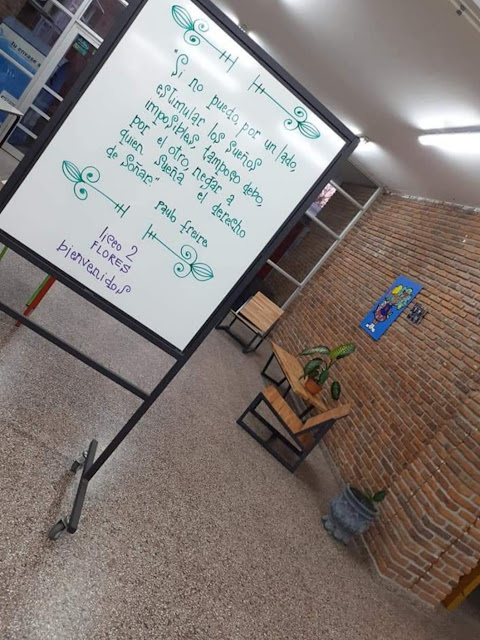 "Si no puedo, por un lado,
estimular los sueños
imposibles, tampoco debo,
por el otro, negar a
quien sueña el derecho
de soñar."
Paulo freire
liceo 2
FLORES
bienvenidos